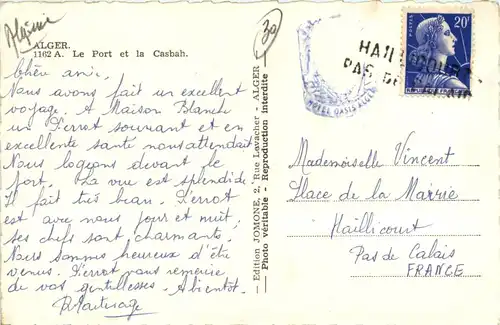 Algérie
ALGER.
1162 A. Le Port et la Casbah.
Chère amie,
Nous avons fait un excellent
voyage. A Maison Blanche
un Pierrot souriant et en
excellente santé nous attendait
Nous logeons devant le
port. La vue est splendide.
Il fait très beau. Pierrot
est avec nous jour et nuit,
ses chefs sont charmants.
Nous sommes heureux d'être
venus. Pierrot vous remercie
de vos gentillesses. A bientôt.
Edition JOMONE, 2, Rue Lavacher - ALGER
Photo véritable - Reproduction interdite
30
HOTEL OASIS ALGER
POSTES
20F
RÉPUBLIQUE FRANÇAISE
PAS DE
Mademoiselle Vincent
Place de la Mairie
Haillicourt
Pas de Calais
FRANCE